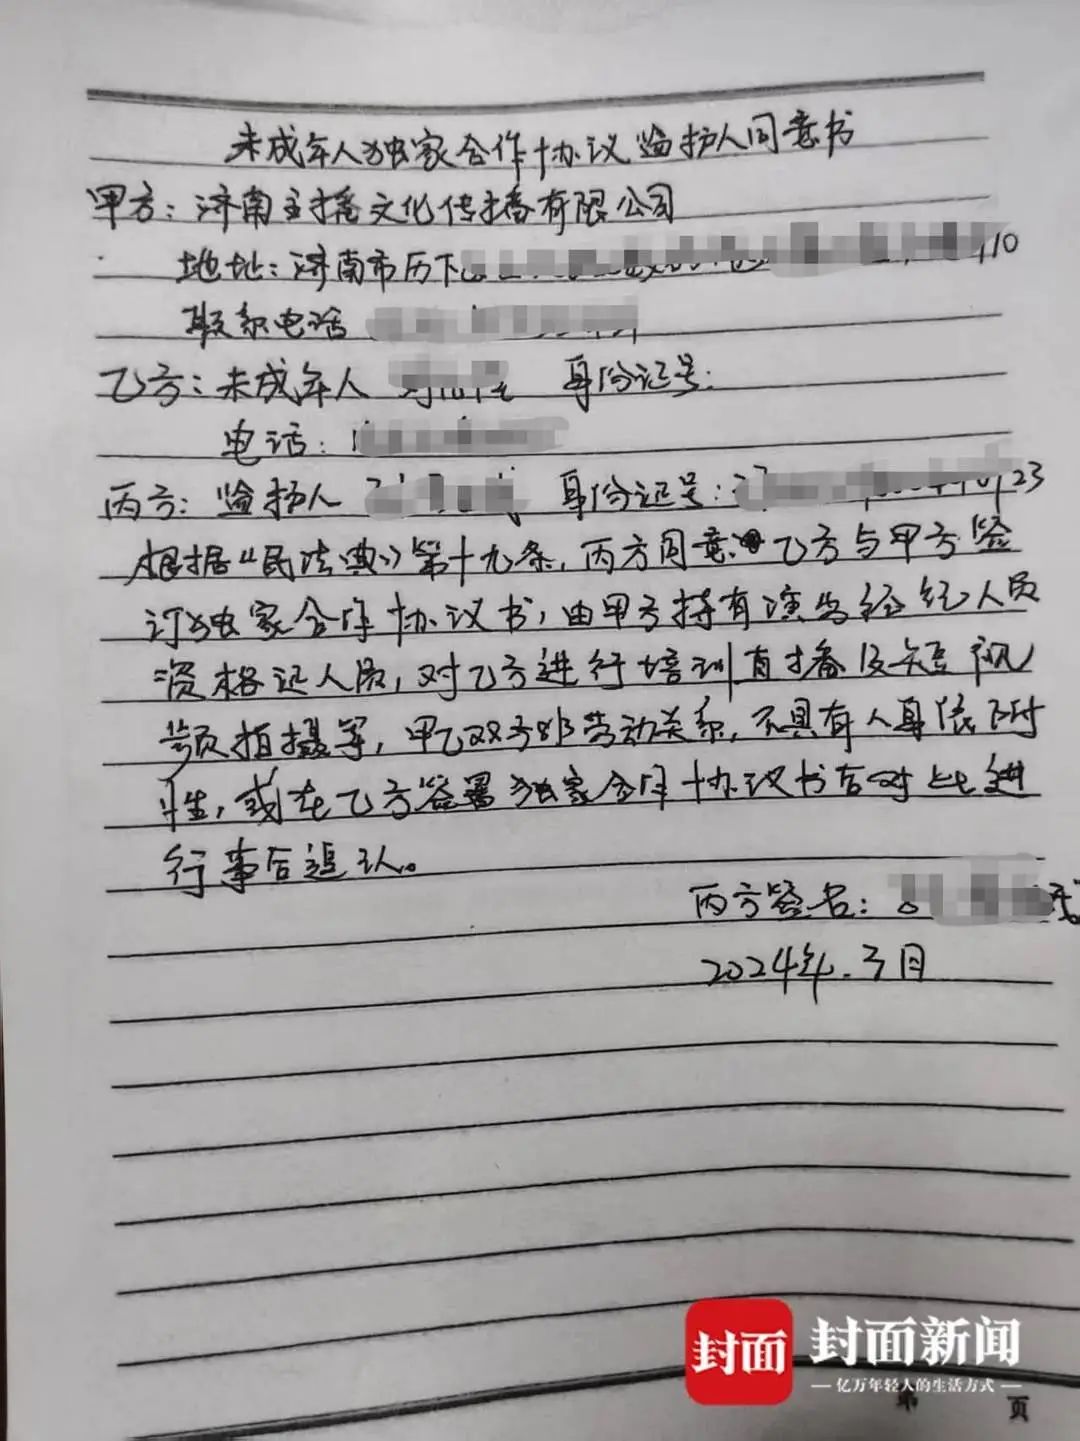 未成年人独家合作协议监护人同意书
甲方：济南主播文化传播有限公司
地址：济南市历下 10
联系电话
乙方：未成年人 身份证号：
电话：
丙方：监护人 身份证号：23
根据《民法典》第十九条，丙方同意 乙方与甲方签
订独家合作协议书，由甲方持有演出经纪人员
资格证人员，对乙方进行培训直播及短视
频拍摄等，甲乙双方非劳动关系，不具有人身依附
性，或在乙方签署独家合作协议书后对此进
行事后追认。
丙方签名：
2024年.3月
封面
封面新闻
亿万年轻人的生活方式
第 页